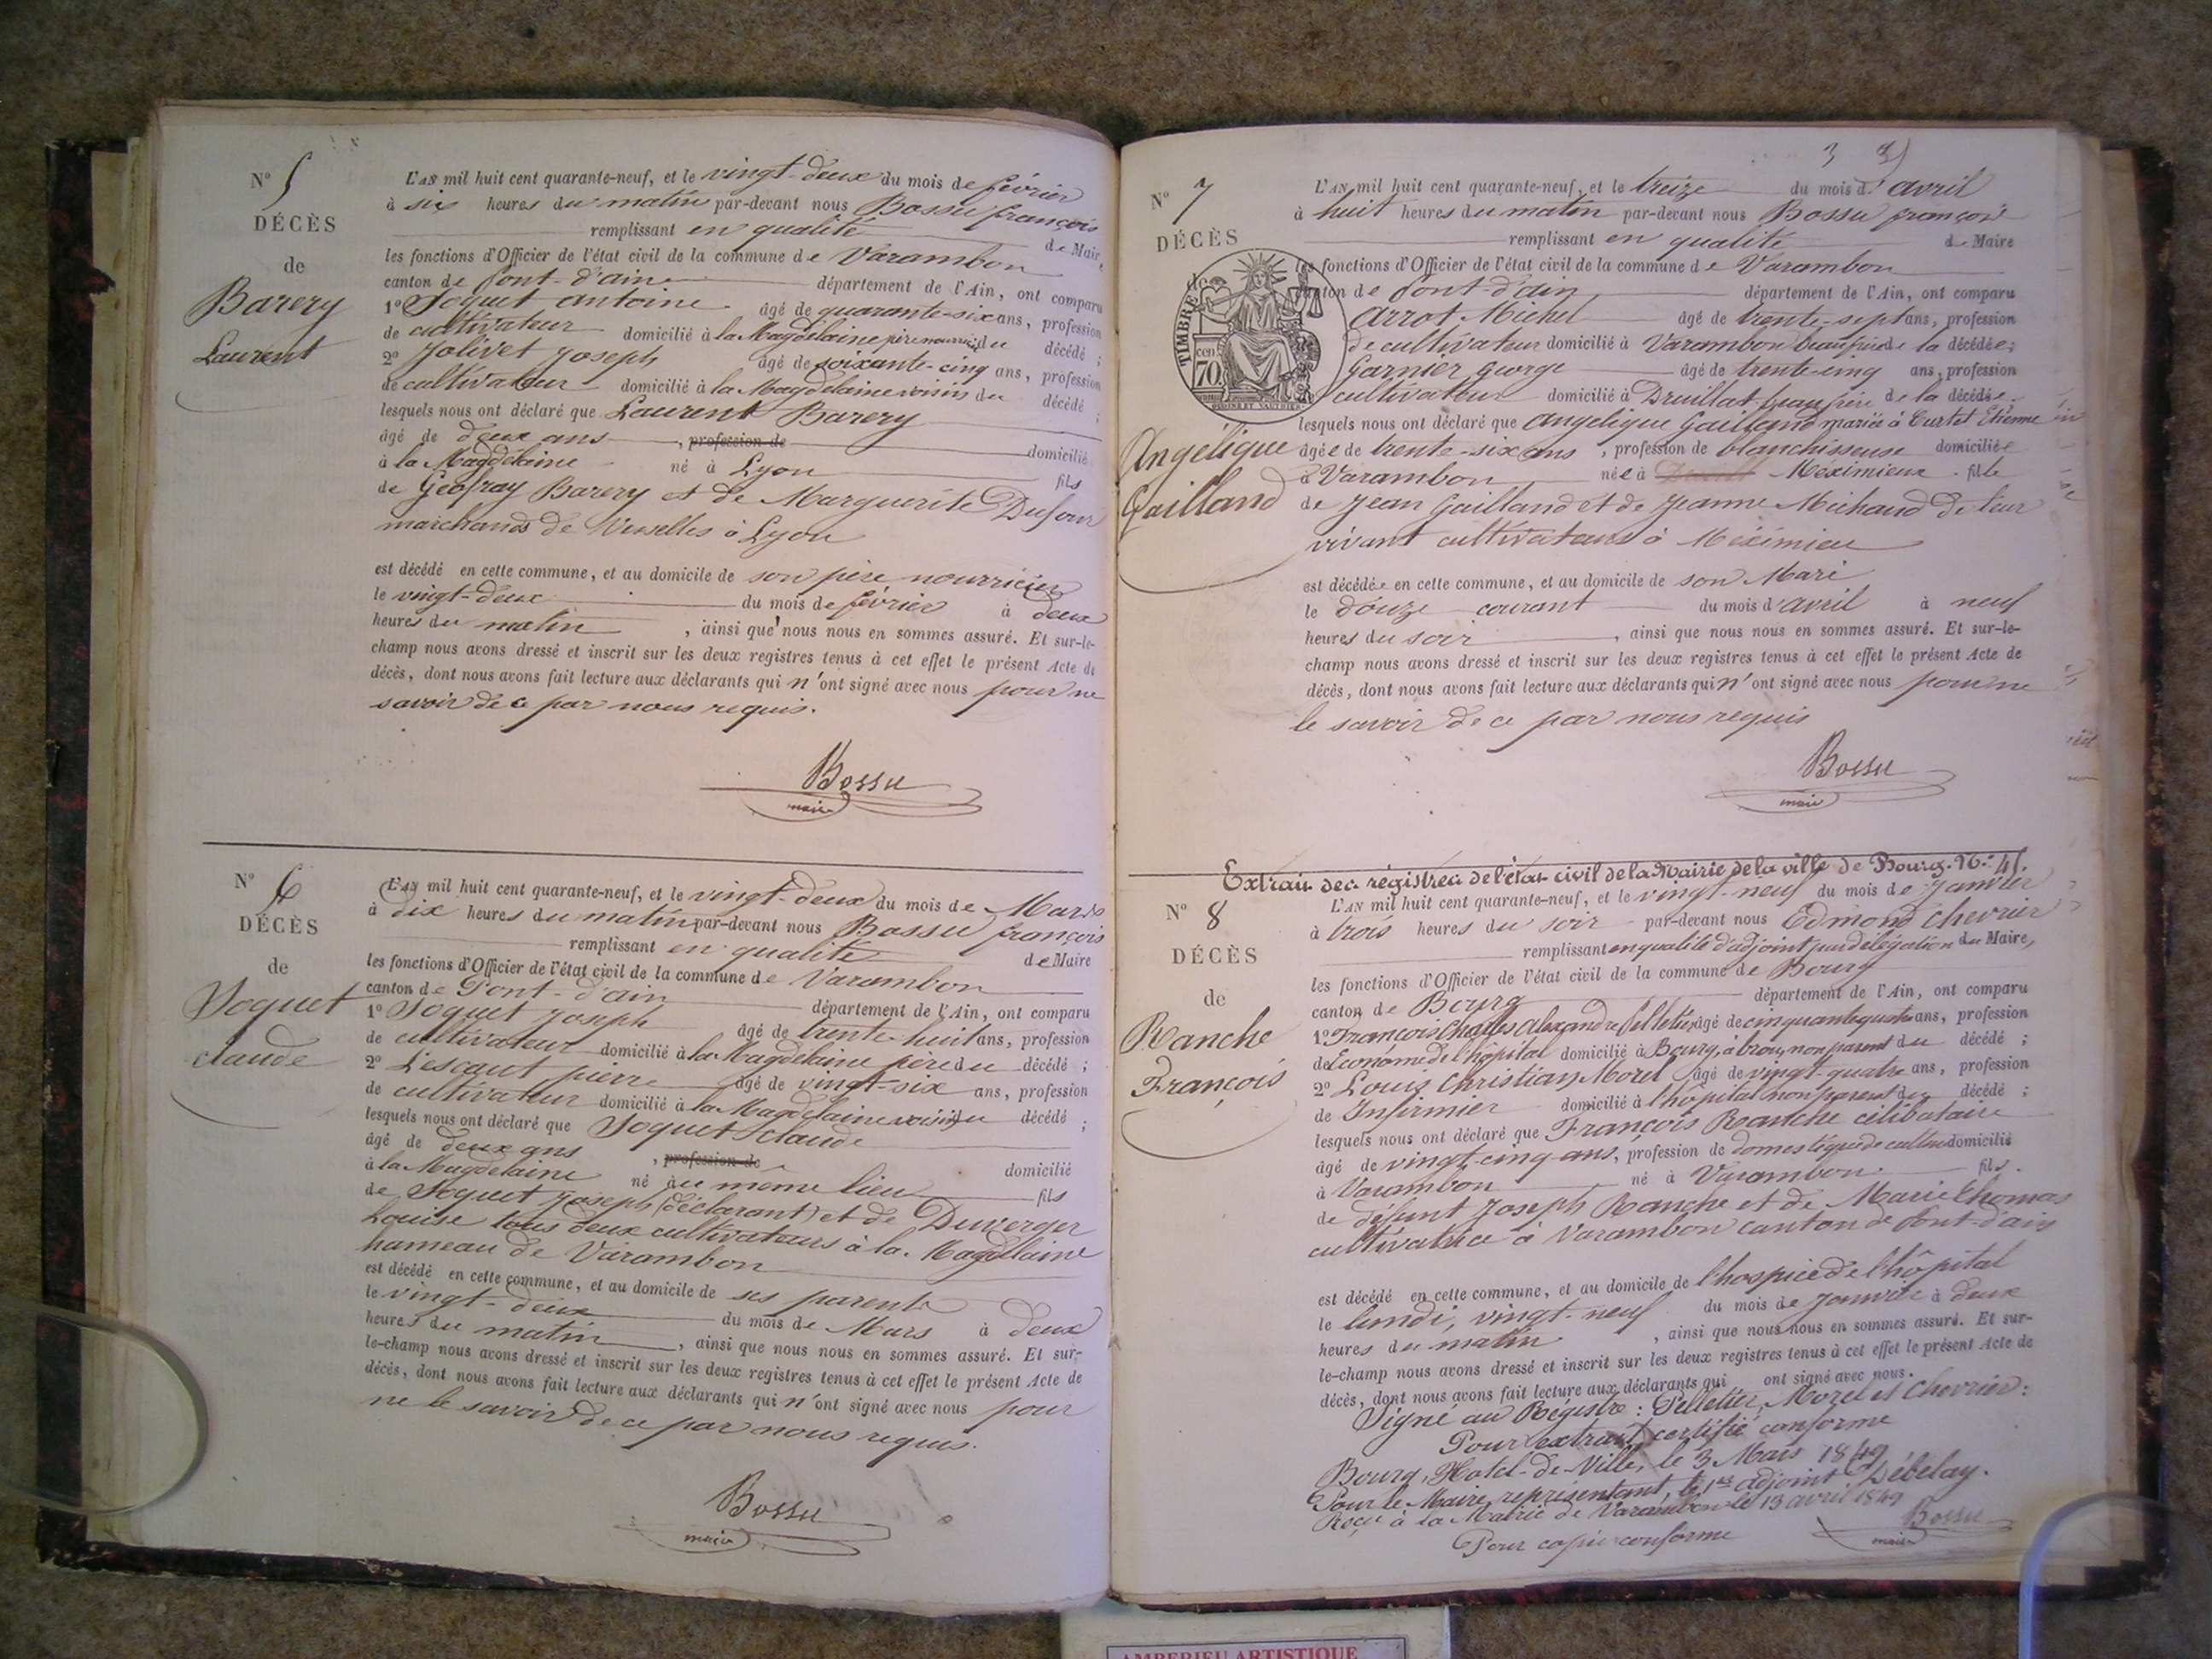 N° 5
DÉCÈS
de
Barery
Laurent
L'AN mil huit cent quarante-neuf, et le vingt-deux du mois de février
à six heures du matin par-devant nous Bossu françois
remplissant en qualité de Maire
les fonctions d'Officier de l'état civil de la commune de Varambon
canton de Pont-d'ain département de l'Ain, ont comparu
1° Joguet antoine âgé de quarante-six ans, profession
de cultivateur domicilié à la Magdelaine père nourricier du décédé ;
2° Jolivet Joseph âgé de soixante-cinq ans, profession
de cultivateur domicilié à la Magdelaine voisin du décédé ;
lesquels nous ont déclaré que Laurent Barery
âgé de deux ans , profession de domicilié
à la Magdelaine né à Lyon fils
de Geofray Barery et de Marguerite Dufour
marchands de à Lyon
est décédé en cette commune, et au domicile de son père nourricier
le vingt-deux du mois de février à deux
heures du matin , ainsi que nous nous en sommes assuré. Et sur-le-
champ nous avons dressé et inscrit sur les deux registres tenus à cet effet le présent Acte de
décès, dont nous avons fait lecture aux déclarants qui n'ont signé avec nous pour ne
savoir de ce par nous requis.
Bossu
maire
N° 6
DÉCÈS
de
Joguet
claude
L'AN mil huit cent quarante-neuf, et le vingt-deux du mois de Mars
à dix heures du matin par-devant nous Bossu françois
remplissant en qualité de Maire
les fonctions d'Officier de l'état civil de la commune de Varambon
canton de Pont-d'ain département de l'Ain, ont comparu
1° Joguet Joseph âgé de trente-huit ans, profession
de cultivateur domicilié à la Magdelaine père du décédé ;
2° Lescaut pierre âgé de vingt-six ans, profession
de cultivateur domicilié à la Magdelaine voisin du décédé ;
lesquels nous ont déclaré que Joguet claude
âgé de deux ans , profession de domicilié
à la Magdelaine né au même lieu fils
de Joguet Joseph (déclarant) et de Duverger
Louise tous deux cultivateurs à la Magdelaine
hameau de Varambon
est décédé en cette commune, et au domicile de ses parents
le vingt-deux du mois de Mars à deux
heures du matin , ainsi que nous nous en sommes assuré. Et sur-
le-champ nous avons dressé et inscrit sur les deux registres tenus à cet effet le présent Acte de
décès, dont nous avons fait lecture aux déclarants qui n'ont signé avec nous pour
ne le savoir de ce par nous requis.
Bossu
maire
3
N° 7
DÉCÈS
de
TIMBRE
cen 70
Angélique
Gailland
L'AN mil huit cent quarante-neuf, et le treize du mois d'avril
à huit heures du matin par-devant nous Bossu françois
remplissant en qualité de Maire
les fonctions d'Officier de l'état civil de la commune de Varambon
canton de Pont-d'ain département de l'Ain, ont comparu
arrot Michel âgé de trente-sept ans, profession
de cultivateur domicilié à Varambon beaufrère de la décédée ;
Garnier George âgé de trente-cinq ans, profession
cultivateur domicilié à Druillat beaufrère de la décédée.
lesquels nous ont déclaré que angelique Gailland mariée à Curtet Etienne
âgée de trente-six ans , profession de blanchisseuse domiciliée
à Varambon née à Meximieux fille
de Jean Gailland et de Jeanne Michaud de leur
vivant cultivateurs à Méximieu
est décédée en cette commune, et au domicile de son Mari
le douze courant du mois d'avril à neuf
heures du soir , ainsi que nous nous en sommes assuré. Et sur-le-
champ nous avons dressé et inscrit sur les deux registres tenus à cet effet le présent Acte de
décès, dont nous avons fait lecture aux déclarants qui n'ont signé avec nous pour ne
le savoir de ce par nous requis
Bossu
maire
Extrait des régistres de l'état civil de la Mairie de la ville de Bourg. N° 45.
N° 8
DÉCÈS
de
Ranche
François
L'AN mil huit cent quarante-neuf, et le vingt-neuf du mois de Janvier
à trois heures du soir par-devant nous Edmond Chevrier
remplissant en qualité d'adjoint par délégation du Maire,
les fonctions d'Officier de l'état civil de la commune de Bourg
canton de Bourg département de l'Ain, ont comparu
1° François Charles Alexandre Pelletier, âgé de cinquante quatre ans, profession
de Econome de l'hôpital domicilié à Bourg, à brou, non parent du décédé ;
2° Louis Christian Morel âgé de vingt-quatre ans, profession
de Infirmier domicilié à l'hôpital non parent du décédé ;
lesquels nous ont déclaré que François Ranche célibataire
âgé de vingt-cinq ans, profession de domestique de culture domicilié
à Varambon né à Varambon fils.
de défunt Joseph Ranche et de Marie Thomas
cultivatrice à Varambon canton de Pont-d'ain
est décédé en cette commune, et au domicile de l'hospice de l'hôpital
le lundi, vingt-neuf du mois de Janvier à deux
heures du matin , ainsi que nous nous en sommes assuré. Et sur-
le-champ nous avons dressé et inscrit sur les deux registres tenus à cet effet le présent Acte de
décès, dont nous avons fait lecture aux déclarants qui ont signé avec nous.
Signé au Régistre : Pelletier, Morel et Chevrier :
Pour extrait certifié conforme
Bourg, Hotel-de-Ville, le 3 Mars 1849
Pour le Maire, représentant, le 1er adjoint Débelay.
Reçu à la Mairie de Varambon le 13 avril 1849
Pour copie conforme
Bossu
maire
AMBERIEU ARTISTIQUE